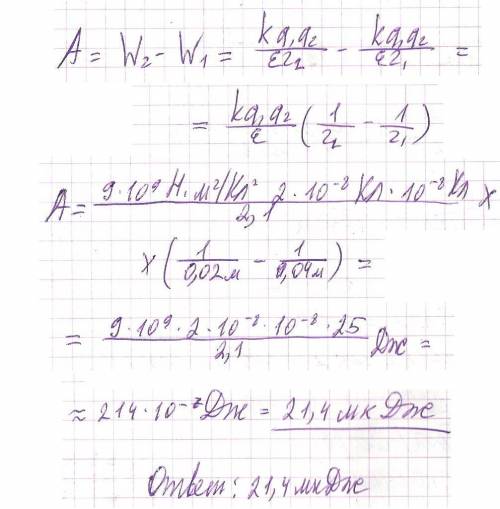 A = W₂ - W₁ = kq₁q₂/εr₂ - kq₁q₂/εr₁ =
= kq₁q₂/ε (1/r₂ - 1/r₁)
A = 9·10⁹ Н·м²/Кл² 2·10⁻⁸ Кл·10⁻⁸ Кл/2,1 x
x (1/0,02м - 1/0,04м) =
= 9·10⁹·2·10⁻⁸·10⁻⁸·25/2,1 Дж =
≈ 214·10⁻⁷ Дж = 21,4 мкДж
Ответ: 21,4 мкДж